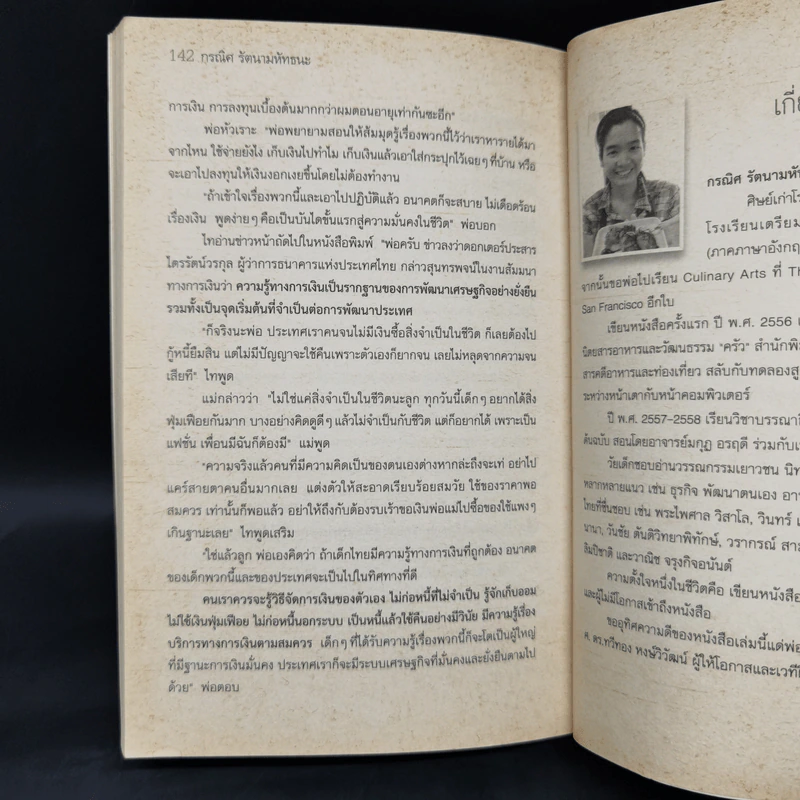 142 กรณิศ รัตนามหัทธนะ
การเงิน การลงทุนเบื้องต้นมากกว่าผมตอนอายุเท่ากันซะอีก"
พ่อหัวเราะ "พ่อพยายามสอนให้ส้มมุดรู้เรื่องพวกนี้ไว้ว่าเราหารายได้มา
จากไหน ใช้จ่ายยังไง เก็บเงินไปทำไม เก็บเงินแล้วเอาใส่กระปุกไว้เฉยๆ ที่บ้าน หรือ
จะเอาไปลงทุนให้เงินงอกเงยขึ้นโดยไม่ต้องทำงาน
"ถ้าเข้าใจเรื่องพวกนี้และเอาไปปฏิบัติแล้ว อนาคตก็จะสบาย ไม่เดือดร้อน
เรื่องเงิน พูดง่ายๆ คือเป็นบันไดขั้นแรกสู่ความมั่นคงในชีวิต" พ่อบอก
ไทอ่านข่าวหน้าถัดไปในหนังสือพิมพ์ "พ่อครับ ข่าวลงว่าดอกเตอร์ประสาร
ไตรรัตน์วรกุล ผู้ว่าการธนาคารแห่งประเทศไทย กล่าวสุนทรพจน์ในงานสัมมนา
ทางการเงินว่า ความรู้ทางการเงินเป็นรากฐานของการพัฒนาเศรษฐกิจอย่างยั่งยืน
รวมทั้งเป็นจุดเริ่มต้นที่จำเป็นต่อการพัฒนาประเทศ
"ก็จริงนะพ่อ ประเทศเราคนจนไม่มีเงินซื้อสิ่งจำเป็นในชีวิต ก็เลยต้องไป
กู้หนี้ยืมสิน แต่ไม่มีปัญญาจะใช้คืนเพราะตัวเองก็ยากจน เลยไม่หลุดจากความจน
เสียที" ไทพูด
แม่กล่าวว่า "ไม่ใช่แค่สิ่งจำเป็นในชีวิตนะลูก ทุกวันนี้เด็กๆ อยากได้สิ่ง
ฟุ่มเฟือยกันมาก บางอย่างคิดดูดีๆ แล้วไม่จำเป็นกับชีวิต แต่ก็อยากได้ เพราะเป็น
แฟชั่น เพื่อนมีฉันก็ต้องมี" แม่พูด
"ความจริงแล้วคนที่มีความคิดเป็นของตนเองต่างหากล่ะถึงจะเท่ อย่าไป
แคร์สายตาคนอื่นมากเลย แต่งตัวให้สะอาดเรียบร้อยสมวัย ใช้ของราคาพอ
สมควร เท่านั้นก็พอแล้ว อย่าให้ถึงกับต้องรบเร้าขอเงินพ่อแม่ไปซื้อของใช้แพงๆ
เกินฐานะเลย" ไทพูดเสริม
"ใช่แล้วลูก พ่อเองคิดว่า ถ้าเด็กไทยมีความรู้ทางการเงินที่ถูกต้อง อนาคต
ของเด็กพวกนี้และของประเทศจะเป็นไปในทิศทางที่ดี
คนเราควรจะรู้วิธีจัดการเงินของตัวเอง ไม่ก่อหนี้ที่ไม่จำเป็น รู้จักเก็บออม
ไม่ใช้เงินฟุ่มเฟือย ไม่ก่อหนี้นอกระบบ เป็นหนี้แล้วใช้คืนอย่างมีวินัย มีความรู้เรื่อง
บริการทางการเงินตามสมควร เด็กๆ ที่ได้รับความรู้เรื่องพวกนี้ก็จะโตเป็นผู้ใหญ่
ที่มีฐานะการเงินมั่นคง ประเทศเราก็จะมีระบบเศรษฐกิจที่มั่นคงและยั่งยืนตามไป
ด้วย" พ่อตอบ
กรณิศ รัตนามหั
ศิษย์เก่าโร
โรงเรียนเตรียม
(ภาคภาษาอังกฤ
จากนั้นขอพ่อไปเรียน Culinary Arts ที่ Th
San Francisco อีกใบ
เขียนหนังสือครั้งแรก ปี พ.ศ. 2556
นิตยสารอาหารและวัฒนธรรม "ครัว" สำนักพิม
สารคดีอาหารและท่องเที่ยว สลับกับทดลองสู
ระหว่างหน้าเตากับหน้าคอมพิวเตอร์
ปี พ.ศ. 2557-2558 เรียนวิชาบรรณาธิ
ต้นฉบับ สอนโดยอาจารย์มกุฏ อรฤดี ร่วมกับเ
วัยเด็กชอบอ่านวรรณกรรมเยาวชน นิท
หลากหลายแนว เช่น ธุรกิจ พัฒนาตนเอง อา
ไทยที่ชื่นชอบ เช่น พระไพศาล วิสาโล, วินทร์
นานา, วันชัย ตันติวิทยาพิทักษ์, วรากรณ์ สาม
ลิมปิชาติ และวาณิช จรุงกิจอนันต์
ความตั้งใจหนึ่งในชีวิตคือ เขียนหนังสือ
และผู้ไม่มีโอกาสเข้าถึงหนังสือ
ขออุทิศความดีของหนังสือเล่มนี้แด่พ่อ
ศ. ดร.ทวีทอง หงษ์วิวัฒน์ ผู้ให้โอกาสและเวที